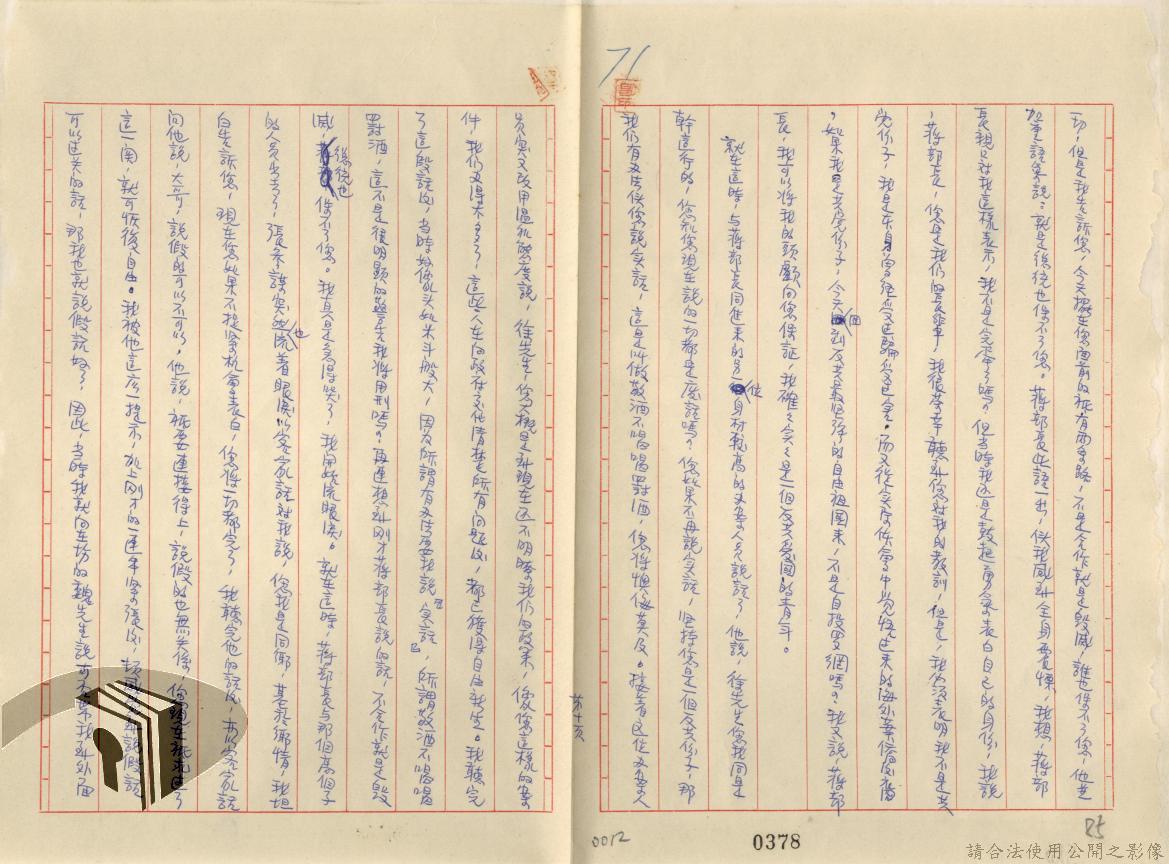 71
一切，但是我告訴你，今天擺在你面前的祇有兩條路，不是合作就是毀滅，誰也保不了你，他並
加重語氣說：就是總統也保不了你。蔣部長此語一出，使我感到全身震慄，我想，蔣部
長親口對我這樣表示，我不是完蛋了嗎？但當時我還是鼓起勇氣表白自己的身份，我說
，蔣部長，你是我們的長輩，我很榮幸聽到你對我的教訓，但是，我必須表明我不是共
黨份子，我是
，如果我是共產份子，今天回到反共最堅強的自由祖國來，不是自投羅網嗎？我又說，蔣部
長，我可以將我的頭顱向你保証，我確確實實是一個反共愛國的青年。
就在這時，與蔣部長同進來的另一位身材較高的辦案人員說話了，他說，徐先生你我同是
幹這行的，你知你現在說的一切都是廢話嗎？你如果不再說實話，堅持你是一個反共份子，那
我們有辦法使你說實話，這是叫做敬酒不喝喝罰酒，你將懊悔莫及。接著這位辦案人
員突又改用溫和態度說，徐先生，你大概是到現在还不明瞭我們的政策，像你這樣的案
件，我們辦得太多了，這些人在向政府交代清楚所有問題後，都已獲得自由新生。我聽完
了這段話後，当時好像头如米斗般大，因为所謂有辦法要我說「實話」，所謂敬酒不喝喝
罰酒，這不是很明顯的警告我將用刑嗎？再連想到刚才蔣部長說的話，不合作就是毀
滅，總統也保不了你。我真是急得哭了，我開始流眼淚。就在這時，蔣部長與那個高個子
的人員出去了，張參謀突然也流着眼淚以客家話對我說，你我是同鄉，基於鄉情，我坦
白告訴你，現在你如果不提緊机會表白，你將一切都完了，我聽完他的話後，亦以客家話
向他說，大哥，說假的可以不可以，他說，祇要連接得上，說假的也無关係，你現在祇先过了
這一関，就可恢復自由。我被他這麽一提示，加上刚才的一連串緊張後，
可以过关的話，那我也就說假說好了，因此，当時我就向在場的魏先生說可不可帶我到外面
第十頁
0012
0378
85
請合法使用公開之影像